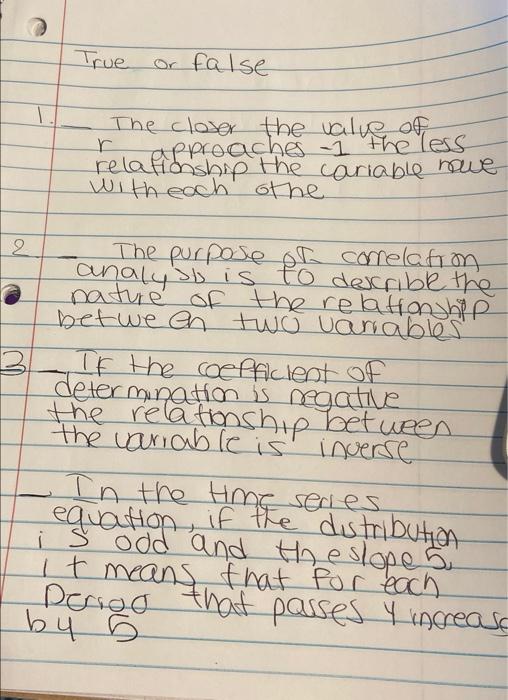 True or false
1. — The closer the value of
r approaches -1 the less
relationship the cariable have
with each othe
2 — The purpose of correlation
analysis is to describe the
nature of the relationship
between two variables
3 — If the coefficient of
determination is negative
the relationship between
the variable is inverse
— In the time series
equation, if the distribution
is odd and the slope 5,
it means that for each
Period that passes Y increase
by 5